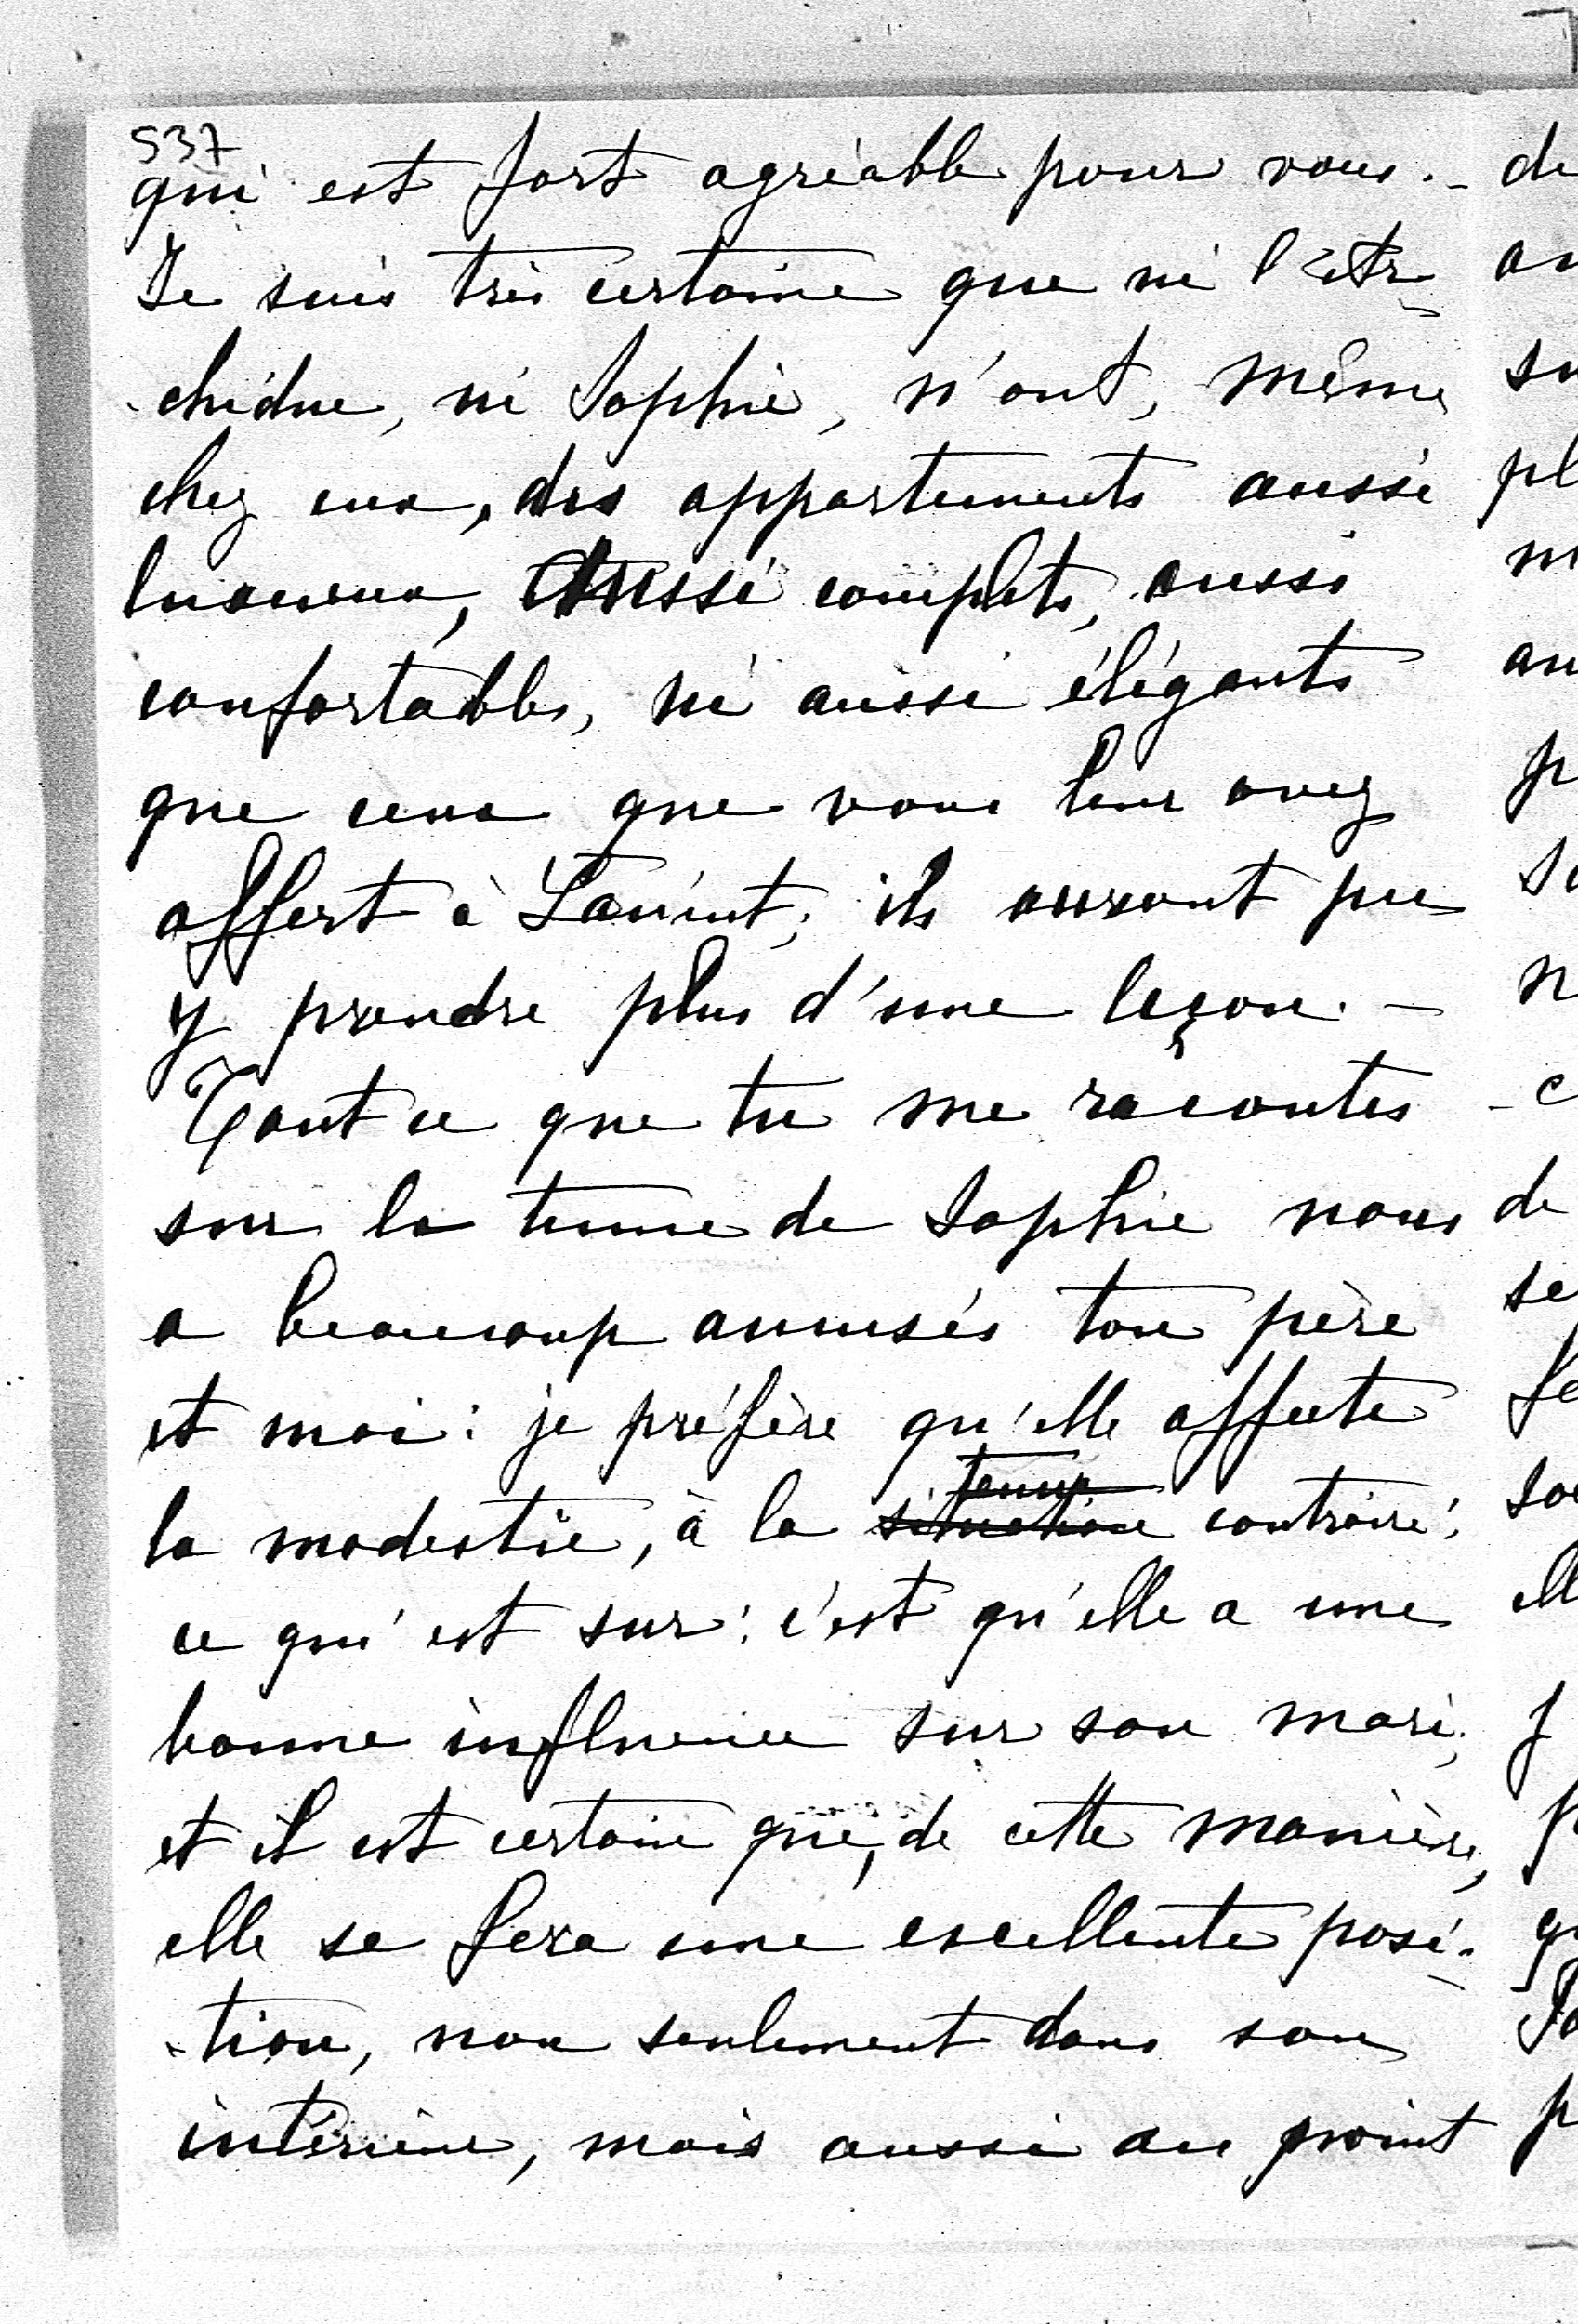 537
qui est fort agréable pour vous. _
Je suis très certaine que ni l'Ar-
-chiduc, ni Sophie, n'ont, même
chez eux, des appartements aussi
luxueux, aussi complets, aussi
confortables, ni aussi élégants
que ceux que vous leur avez
offert à Lanint; ils auront pu
y prendre plus d'une leçon. _
Tout ce que tu me racontes
sur la tenue de Sophie nous
a beaucoup amusés ton père
et moi: je préfère qu'elle affecte
la modestie, à la situation tenue contraire;
ce qui est sur: c'est qu'elle a une
bonne influence sur son mari,
et il est certain que, de cette manière,
elle se fera une excellente posi-
-tion, non seulement dans son
intérieur, mais aussi au point